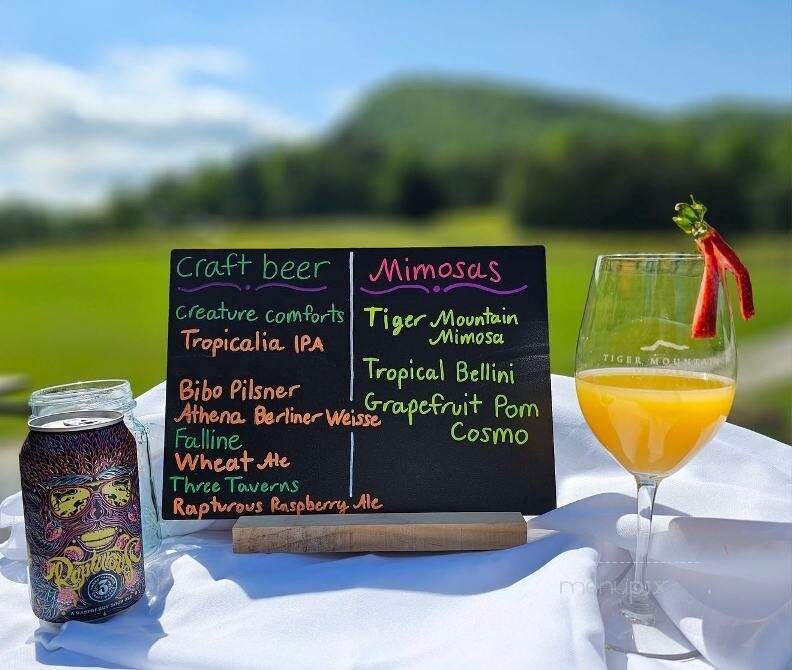 Craft beer
Creature comforts
Tropicalia IPA
Bibo Pilsner
Athena Berliner Weisse
Falline
Wheat Ale
Three Taverns
Rapturous Raspberry Ale
Mimosas
Tiger Mountain
Mimosa
Tropical Bellini
Grapefruit Pom
Cosmo
Rapturous
3
A RASPBERRY SOUR ALE
TIGER MOUNTAIN
menupix